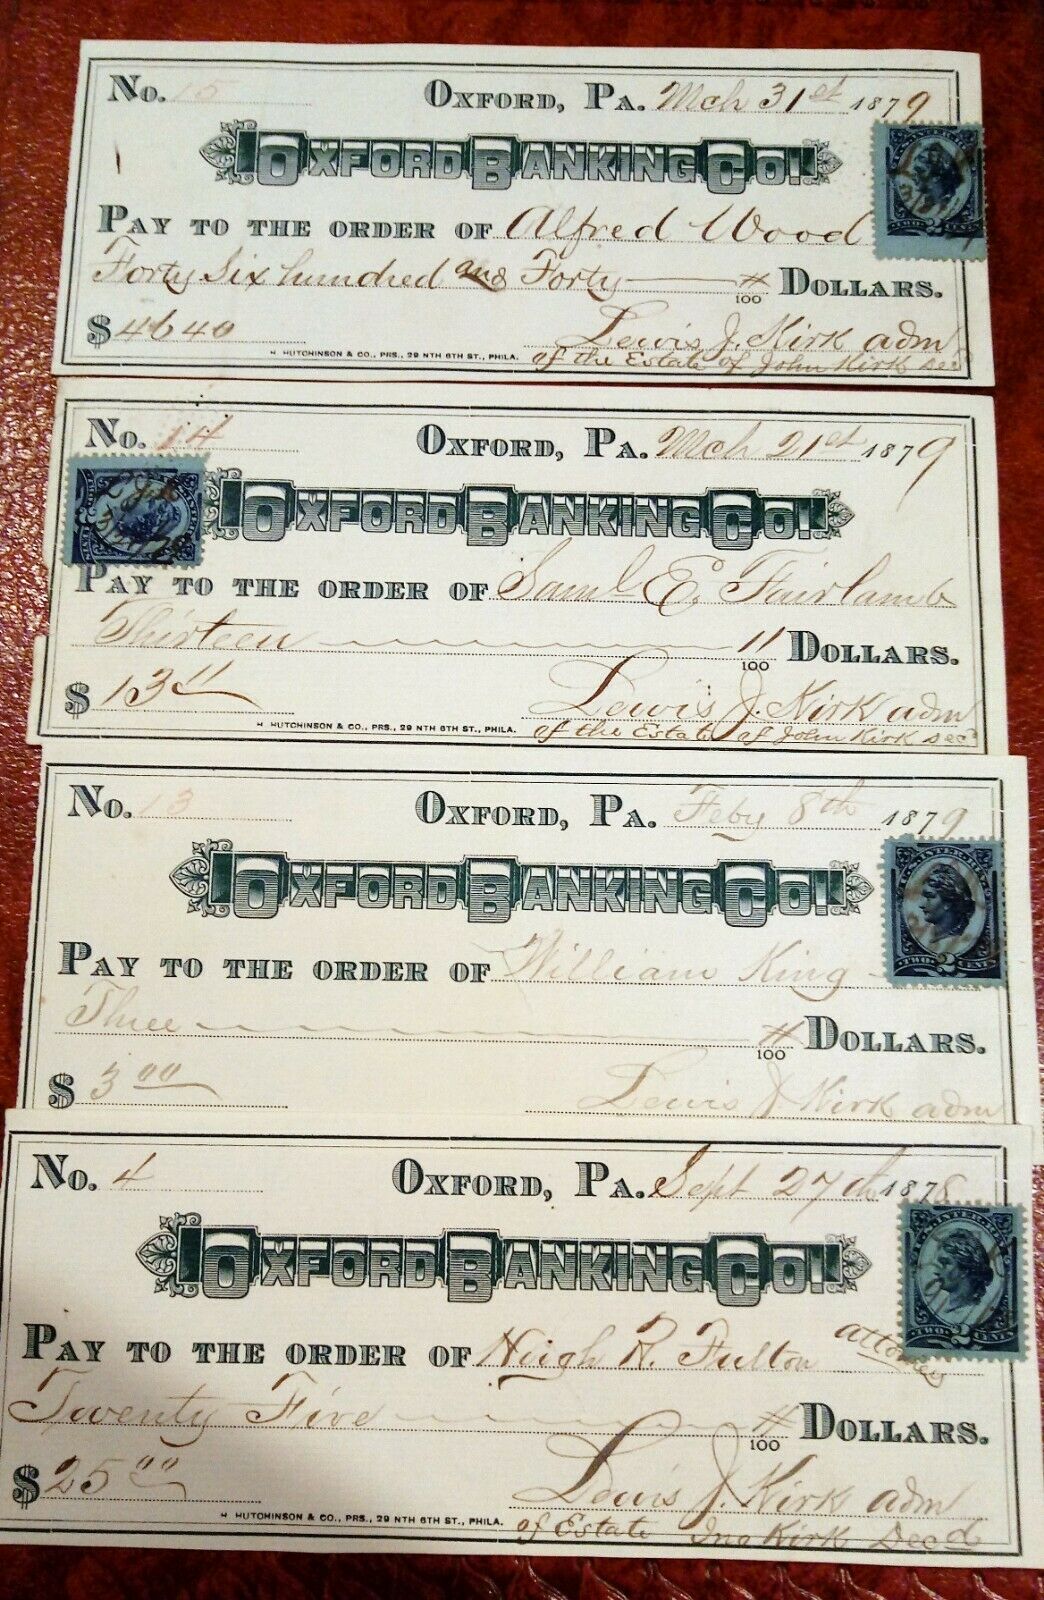 No. 15 Oxford, Pa. Mch 31st 1879
Oxford Banking Co!
Pay to the order of Alfred Wood
Forty Six hundred and Forty 100 Dollars.
$ 4640 Lewis J. Kirk adm
H. HUTCHINSON & CO., PRS., 29 NTH 6TH ST., PHILA. of the Estate of John Kirk Decd
No. 14 Oxford, Pa. Mch 21st 1879
Oxford Banking Co!
Pay to the order of Saml E. Fairlamb
Thirteen 11/100 Dollars.
$ 13 11 Lewis J. Kirk adm
H. HUTCHINSON & CO., PRS., 29 NTH 6TH ST., PHILA. of the Estate of John Kirk Decd
No. 13 Oxford, Pa. Feby 8th 1879
Oxford Banking Co!
Pay to the order of William King
TWO 2 CENTS
Three 100 Dollars.
$ 3 00 Lewis J Kirk adm
No. 4 Oxford, Pa. Sept 27th 1878
Oxford Banking Co!
TWO 2 CENTS
Pay to the order of Hugh R. Fulton attorney
Twenty Five 100 Dollars.
$ 25 00 Lewis J. Kirk adm
H. HUTCHINSON & CO., PRS., 29 NTH 6TH ST., PHILA. of Estate Jno Kirk Decd